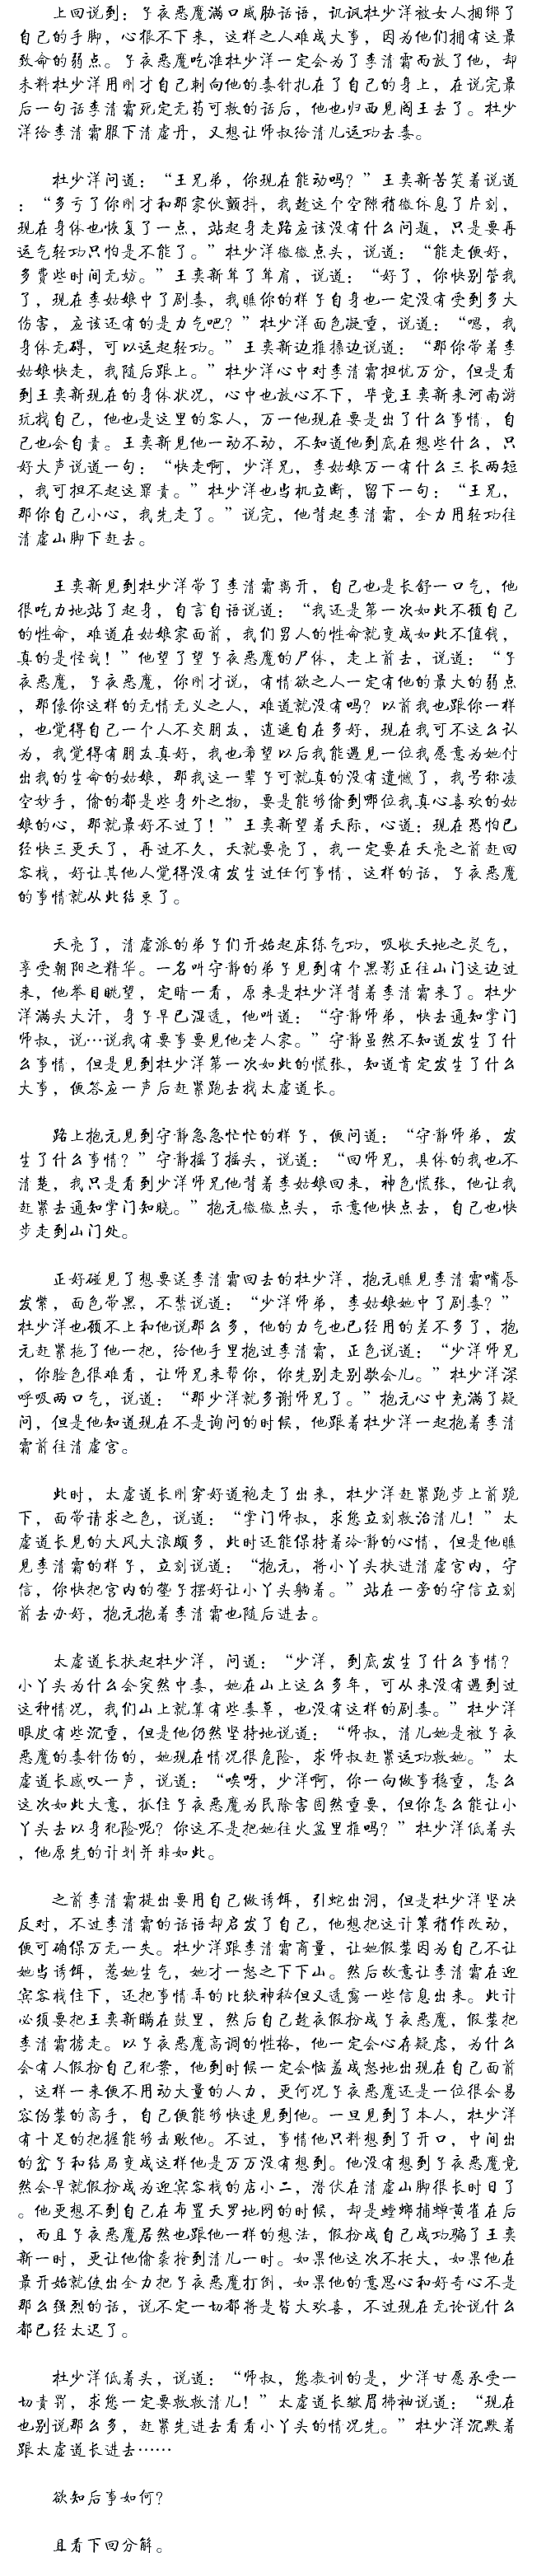 上回说到：子夜恶魔满口威胁话语，讥讽杜少洋被女人捆绑了
自己的手脚，心狠不下来，这样之人难成大事，因为他们拥有这最
致命的弱点。子夜恶魔吃准杜少洋一定会为了李清霜而放了他，却
未料杜少洋用刚才自己刺向他的毒针扎在了自己的身上，在说完最
后一句话李清霜死定无药可救的话后，他也归西见阎王去了。杜少
洋给李清霜服下清虚丹，又想让师叔给清儿运功去毒。
杜少洋问道：“王兄弟，你现在能动吗？”王奕新苦笑着说道
：“多亏了你刚才和那家伙颤抖，我趁这个空隙稍微休息了片刻，
现在身体也恢复了一点，站起身走路应该没有什么问题，只是要再
运气轻功只怕是不能了。”杜少洋微微点头，说道：“能走便好，
多费些时间无妨。”王奕新耸了耸肩，说道：“好了，你快别管我
了，现在李姑娘中了剧毒，我瞧你的样子自身也一定没有受到多大
伤害，应该还有的是力气吧？”杜少洋面色凝重，说道：“嗯，我
身体无碍，可以运起轻功。”王奕新边推搡边说道：“那你带着李
姑娘快走，我随后跟上。”杜少洋心中对李清霜担忧万分，但是看
到王奕新现在的身体状况，心中也放心不下，毕竟王奕新来河南游
玩找自己，他也是这里的客人，万一他现在要是出了什么事情，自
己也会自责。王奕新见他一动不动，不知道他到底在想些什么，只
好大声说道一句：“快走啊，少洋兄，李姑娘万一有什么三长两短
，我可担不起这罪责。”杜少洋也当机立断，留下一句：“王兄，
那你自己小心，我先走了。”说完，他背起李清霜，全力用轻功往
清虚山脚下赶去。
王奕新见到杜少洋带了李清霜离开，自己也是长舒一口气，他
很吃力地站了起身，自言自语说道：“我还是第一次如此不顾自己
的性命，难道在姑娘家面前，我们男人的性命就变成如此不值钱，
真的是怪哉！”他望了望子夜恶魔的尸体，走上前去，说道：“子
夜恶魔，子夜恶魔，你刚才说，有情欲之人一定有他的最大的弱点
，那像你这样的无情无义之人，难道就没有吗？以前我也跟你一样
，也觉得自己一个人不交朋友，逍遥自在多好，现在我可不这么认
为，我觉得有朋友真好，我也希望以后我能遇见一位我愿意为她付
出我的生命的姑娘，那我这一辈子可就真的没有遗憾了，我号称凌
空妙手，偷的都是些身外之物，要是能够偷到哪位我真心喜欢的姑
娘的心，那就最好不过了！”王奕新望着天际，心道：现在恐怕已
经快三更天了，再过不久，天就要亮了，我一定要在天亮之前赶回
客栈，好让其他人觉得没有发生过任何事情，这样的话，子夜恶魔
的事情就从此结束了。
天亮了，清虚派的弟子们开始起床练气功，吸收天地之灵气，
享受朝阳之精华。一名叫守静的弟子见到有个黑影正往山门这边过
来，他举目眺望，定睛一看，原来是杜少洋背着李清霜来了。杜少
洋满头大汗，身子早已湿透，他叫道：“守静师弟，快去通知掌门
师叔，说…说我有要事要见他老人家。”守静虽然不知道发生了什
么事情，但是见到杜少洋第一次如此的慌张，知道肯定发生了什么
大事，便答应一声后赶紧跑去找太虚道长。
路上抱元见到守静急急忙忙的样子，便问道：“守静师弟，发
生了什么事情？”守静摇了摇头，说道：“回师兄，具体的我也不
清楚，我只是看到少洋师兄他背着李姑娘回来，神色慌张，他让我
赶紧去通知掌门知晓。”抱元微微点头，示意他快点去，自己也快
步走到山门处。
正好碰见了想要送李清霜回去的杜少洋，抱元瞧见李清霜嘴唇
发紫，面色带黑，不禁说道：“少洋师弟，李姑娘她中了剧毒？”
杜少洋也顾不上和他说那么多，他的力气也已经用的差不多了，抱
元赶紧拖了他一把，给他手里抱过李清霜，正色说道：“少洋师兄
，你脸色很难看，让师兄来帮你，你先别走别歇会儿。”杜少洋深
呼吸两口气，说道：“那少洋就多谢师兄了。”抱元心中充满了疑
问，但是他知道现在不是询问的时候，他跟着杜少洋一起抱着李清
霜前往清虚宫。
此时，太虚道长刚穿好道袍走了出来，杜少洋赶紧跑步上前跪
下，面带请求之色，说道：“掌门师叔，求您立刻救治清儿！”太
虚道长见的大风大浪颇多，此时还能保持着冷静的心情，但是他瞧
见李清霜的样子，立刻说道：“抱元，将小丫头扶进清虚宫内，守
信，你快把宫内的垫子摆好让小丫头躺着。”站在一旁的守信立刻
前去办好，抱元抱着李清霜也随后进去。
太虚道长扶起杜少洋，问道：“少洋，到底发生了什么事情？
小丫头为什么会突然中毒，她在山上这么多年，可从来没有遇到过
这种情况，我们山上就算有些毒草，也没有这样的剧毒。”杜少洋
眼皮有些沉重，但是他仍然坚持地说道：“师叔，清儿她是被子夜
恶魔的毒针伤的，她现在情况很危险，求师叔赶紧运功救她。”太
虚道长感叹一声，说道：“唉呀，少洋啊，你一向做事稳重，怎么
这次如此大意，抓住子夜恶魔为民除害固然重要，但你怎么能让小
丫头去以身犯险呢？你这不是把她往火盆里推吗？”杜少洋低着头
，他原先的计划并非如此。
之前李清霜提出要用自己做诱饵，引蛇出洞，但是杜少洋坚决
反对，不过李清霜的话语却启发了自己，他想把这计策稍作改动，
便可确保万无一失。杜少洋跟李清霜商量，让她假装因为自己不让
她当诱饵，惹她生气，她才一怒之下下山。然后故意让李清霜在迎
宾客栈住下，还把事情弄的比较神秘但又透露一些信息出来。此计
必须要把王奕新瞒在鼓里，然后自己趁夜假扮成子夜恶魔，假装把
李清霜掳走。以子夜恶魔高调的性格，他一定会心存疑虑，为什么
会有人假扮自己犯案，他到时候一定会恼羞成怒地出现在自己面前
，这样一来便不用动大量的人力，更何况子夜恶魔还是一位很会易
容伪装的高手，自己便能够快速见到他。一旦见到了本人，杜少洋
有十足的把握能够击败他。不过，事情他只料想到了开口，中间出
的岔子和结局变成这样他是万万没有想到。他没有想到子夜恶魔竟
然会早就假扮成为迎宾客栈的店小二，潜伏在清虚山脚很长时日了
。他更想不到自己在布置天罗地网的时候，却是螳螂捕蝉黄雀在后
，而且子夜恶魔居然也跟他一样的想法，假扮成自己成功骗了王奕
新一时，更让他偷袭抢到清儿一时。如果他这次不托大，如果他在
最开始就使出全力把子夜恶魔打倒，如果他的意思心和好奇心不是
那么强烈的话，说不定一切都将是皆大欢喜，不过现在无论说什么
都已经太迟了。
杜少洋低着头，说道：“师叔，您教训的是，少洋甘愿承受一
切责罚，求您一定要救救清儿！”太虚道长皱眉拂袖说道：“现在
也别说那么多，赶紧先进去看看小丫头的情况先。”杜少洋沉默着
跟太虚道长进去……
欲知后事如何？
且看下回分解。